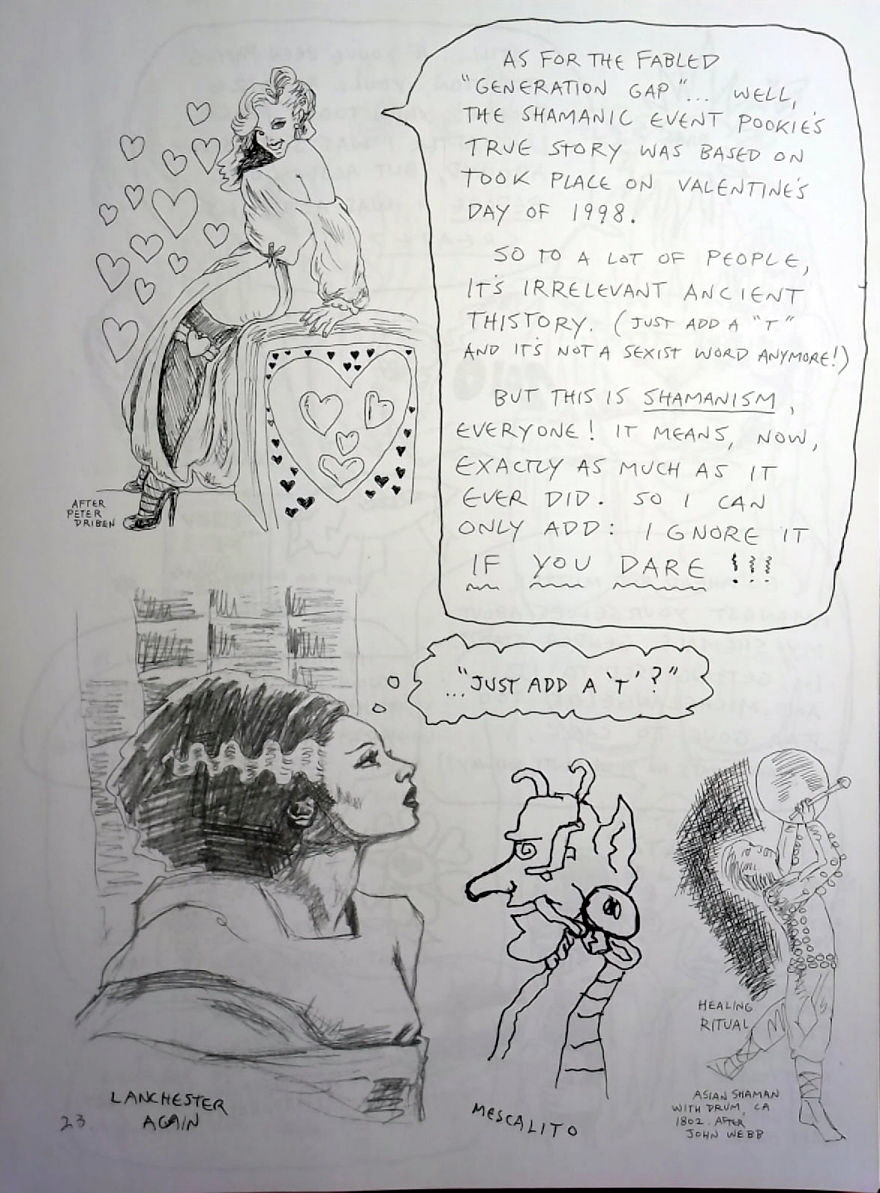 AS FOR THE FABLED
"GENERATION GAP"... WELL,
THE SHAMANIC EVENT POOKIE'S
TRUE STORY WAS BASED ON
TOOK PLACE ON VALENTINE'S
DAY OF 1998.
SO TO A LOT OF PEOPLE,
IT'S IRRELEVANT ANCIENT
THISTORY. (JUST ADD A "T"
AND IT'S NOT A SEXIST WORD ANYMORE!)
BUT THIS IS SHAMANISM,
EVERYONE! IT MEANS, NOW,
EXACTLY AS MUCH AS IT
EVER DID. SO I CAN
ONLY ADD: IGNORE IT
IF YOU DARE !!!
AFTER
PETER
DRIBEN
"...JUST ADD A 'T'?"
LANCHESTER
AGAIN
23
MESCALITO
HEALING
RITUAL
ASIAN SHAMAN
WITH DRUM, CA
1802. AFTER
JOHN WEBB